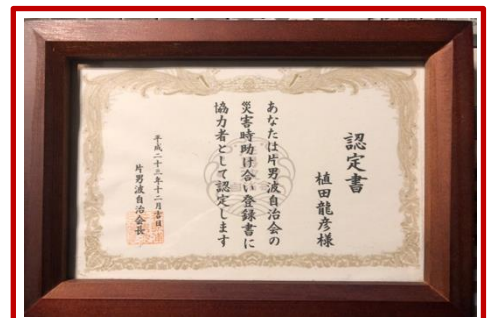 認定書
植田龍彦様
あなたは片男波自治会の
災害時助け合い登録書に
協力者として認定します
平成二十三年十二月吉日
片男波自治会長